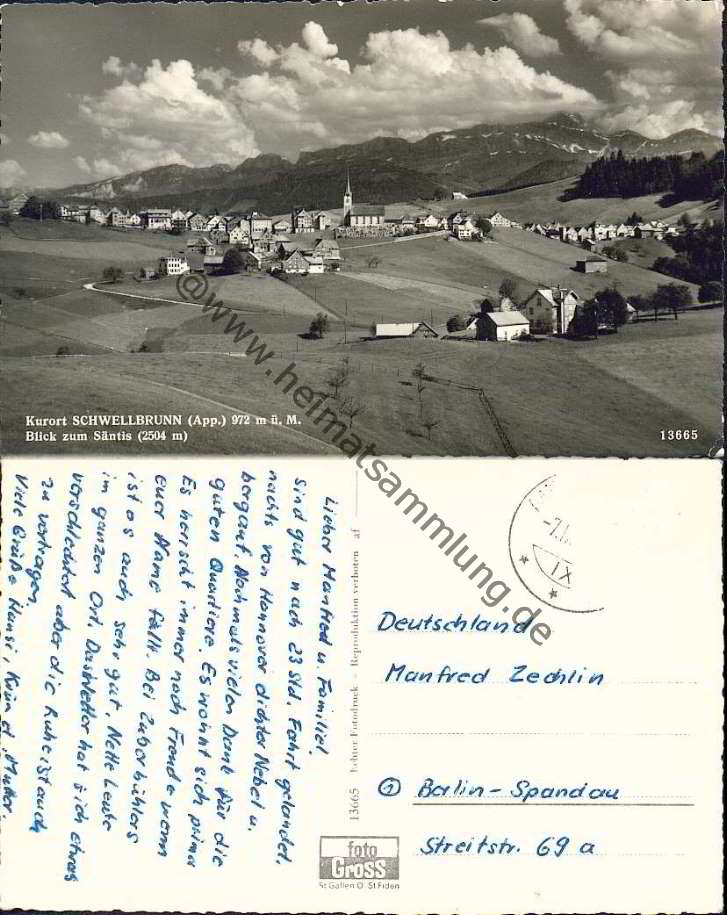 Kurort SCHWELLBRUNN (App.) 972 m ü. M.
Blick zum Säntis (2504 m)
13665
@www.heimatsammlung.de
Lieber Manfred u. Familie!
Sind gut nach 23 Std. Fahrt gelandet,
nachts von Hannover dichter Nebel u.
bergauf. Nochmals vielen Dank für die
guten Quartiere. Es wohnt sich prima
Es herrscht immer noch Freude wenn
euer Name fällt. Bei Zuberbühlers
ist es auch sehr gut. Nette Leute
im ganzen Ort. Das Wetter hat sich etwas
verschlechtert aber die Ruhe ist auch
zu vertragen.
Viele Grüße Hansi, u. Mutter.
13665 Echter Fotodruck - Reproduktion verboten af
foto
GROSS
St. Gallen O St. Fiden
IX
Deutschland
Manfred Zechlin
1 Berlin-Spandau
Streitstr. 69a